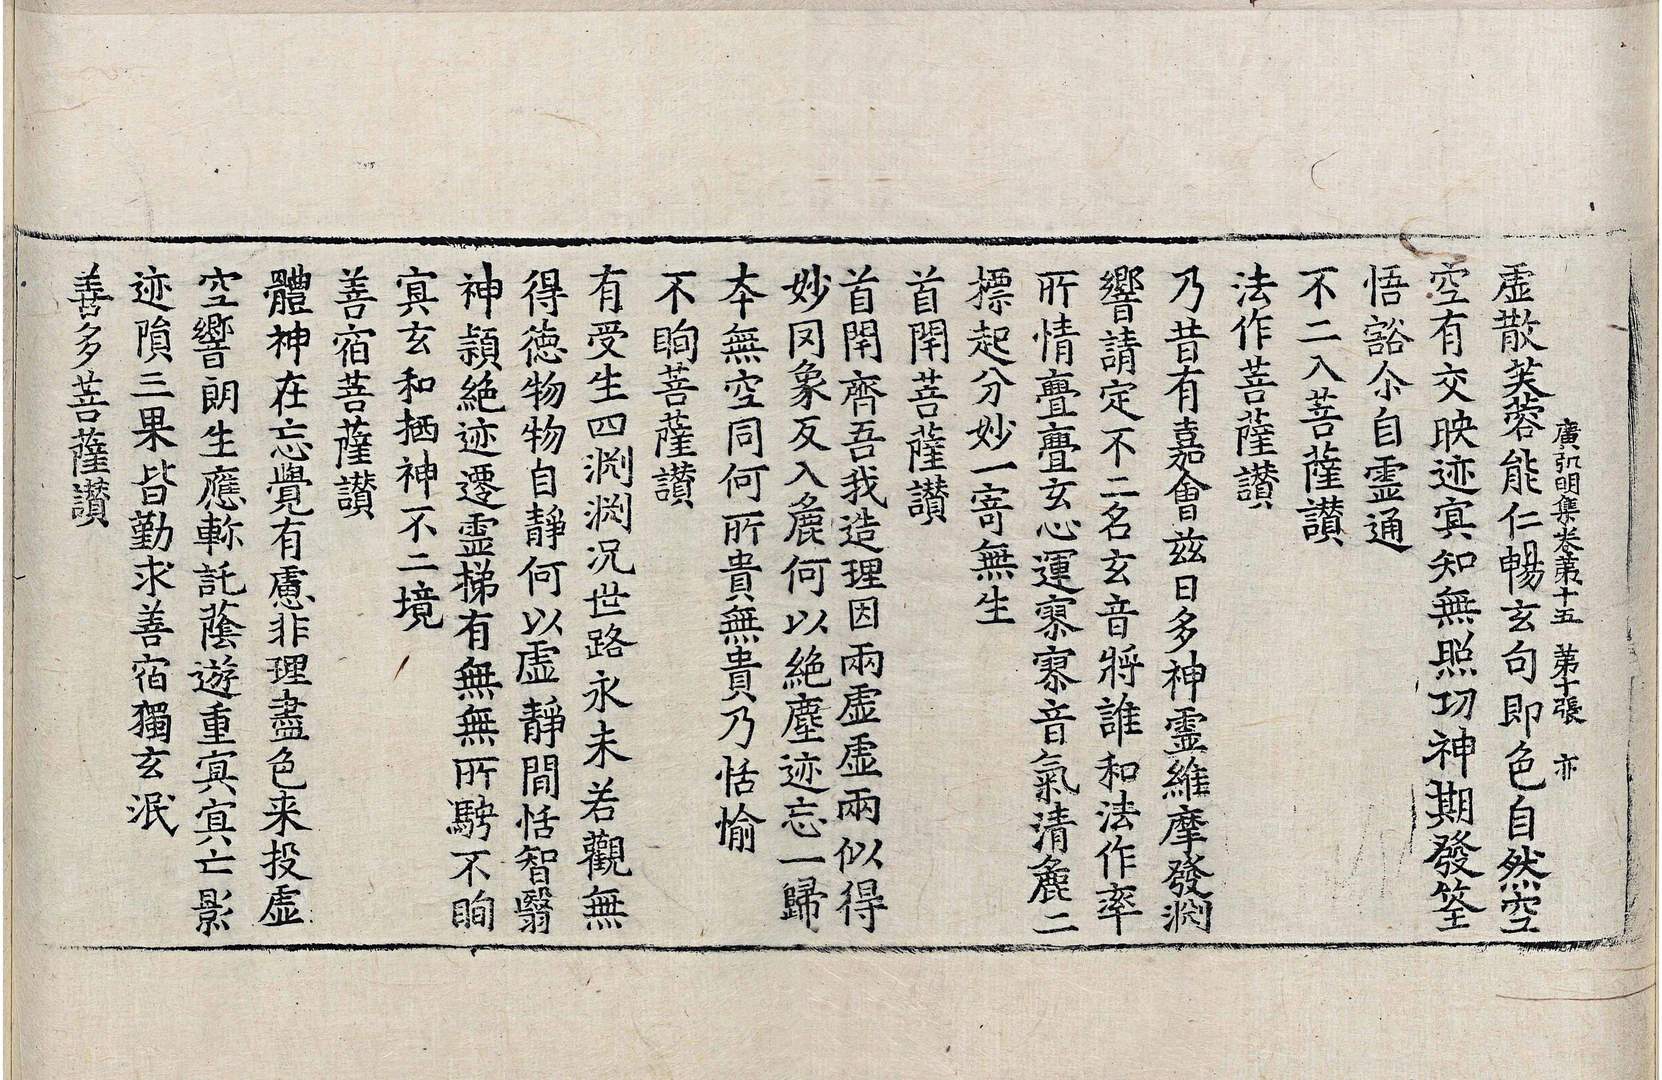 廣弘明集卷第十五　第十張　亦
虛散芙蓉能仁暢玄句即色自然空
空有交映迹㝠知無照功神期發筌
悟豁尒自霊通
不二入菩薩讃
法作菩薩讃
乃昔有嘉會兹日多神霊維摩發渕
響請定不二名玄音將誰和法作率
所情亹亹玄心運寥寥音氣清麁二
摽起分妙一寄無生
首閈菩薩讃
首閈齊吾我造理因兩虛虛兩似得
妙罔象反入麁何以絶塵迹忘一歸
夲無空同何所貴無貴乃恬愉
不眴菩薩讃
有受生四渕渕况世路永未若觀無
得德物物自靜何以虛靜間恬智翳
神頴絶迹遷霊梯有無無所騁不眴
㝠玄和栖神不二境
善宿菩薩讃
體神在忘覺有慮非理盡色来投虛
空響朗生應軫託蔭遊重㝠㝠亡影
迹隕三果皆勤求善宿獨玄泯
善多菩薩讃